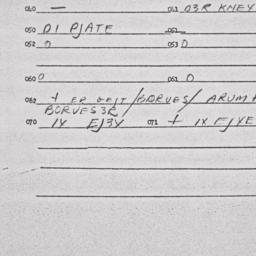 060 — 0L1 D3R KNEY
050 D1 PJATE 052
052 0 053 0
060 0 061 0
062 + ER GEJT /BORVES/ ARUM
BORVES3R
070 1X EJ3Y 071 + 1X EJYE